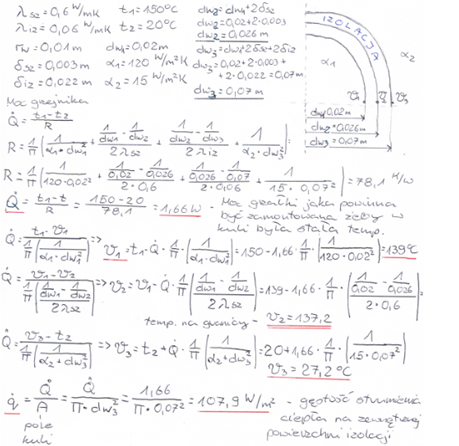 λsz = 0,6 W/mK t1 = 150°C dw2 = dw1 + 2δsz
λiz = 0,06 W/mK t2 = 20°C dw2 = 0,02 + 2·0,003
rw = 0,01m dw1 = 0,02m dw2 = 0,026m
δsz = 0,003m α1 = 120 W/m²K dw3 = dw2 + 2δiz
δiz = 0,022m α2 = 15 W/m²K dw3 = 0,02 + 2·0,003 +
+ 2·0,022 = 0,07m
dw3 = 0,07m
IZOLACJA
α1 α2
ϑ1 ϑ2 ϑ3
dw1 = 0,02m
dw2 = 0,026m
dw3 = 0,07m
Moc grzejnika
Q̇ = (t1 - t2)/R
R = 1/Π (1/(α1·dw1²) + (1/dw1 - 1/dw2)/(2λsz) + (1/dw2 - 1/dw3)/(2λiz) + 1/(α2·dw3²)) =
R = 1/Π (1/(120·0,02²) + (1/0,02 - 1/0,026)/(2·0,6) + (1/0,026 - 1/0,07)/(2·0,06) + 1/(15·0,07²)) = 78,1 K/W
Q̇ = (t1 - t2)/R = (150 - 20)/78,1 = 1,66W - Moc grzałki jaka powinna
być zamontowana żeby w
kuli była stała temp.
Q̇ = (t1 - ϑ1)/(1/Π (1/(α1·dw1²))) => ϑ1 = t1 - Q̇ · 1/Π · (1/(α1·dw1²)) = 150 - 1,66 · 1/Π · (1/(120·0,02²)) = 139°C
Q̇ = (ϑ1 - ϑ2)/(1/Π ((1/dw1 - 1/dw2)/(2λsz))) => ϑ2 = ϑ1 - Q̇ · 1/Π · ((1/dw1 - 1/dw2)/(2λsz)) = 139 - 1,66 · 1/Π · ((1/0,02 - 1/0,026)/(2·0,6)) =
temp. na granicy - ϑ2 = 137,2
Q̇ = (ϑ3 - t2)/(1/Π (1/(α2 + dw3²))) => ϑ3 = t2 + Q̇ · 1/Π · (1/(α2 + dw3²)) = 20 + 1,66 · 1/Π · (1/(15·0,07²))
ϑ3 = 27,2°C
q̇ = Q̇/A = Q̇/(Π·dw3²) = 1,66/(Π·0,07²) = 107,9 W/m² - gęstość strumienia
ciepła na zewnętrznej
powierzchni izolacji
pole
kuli